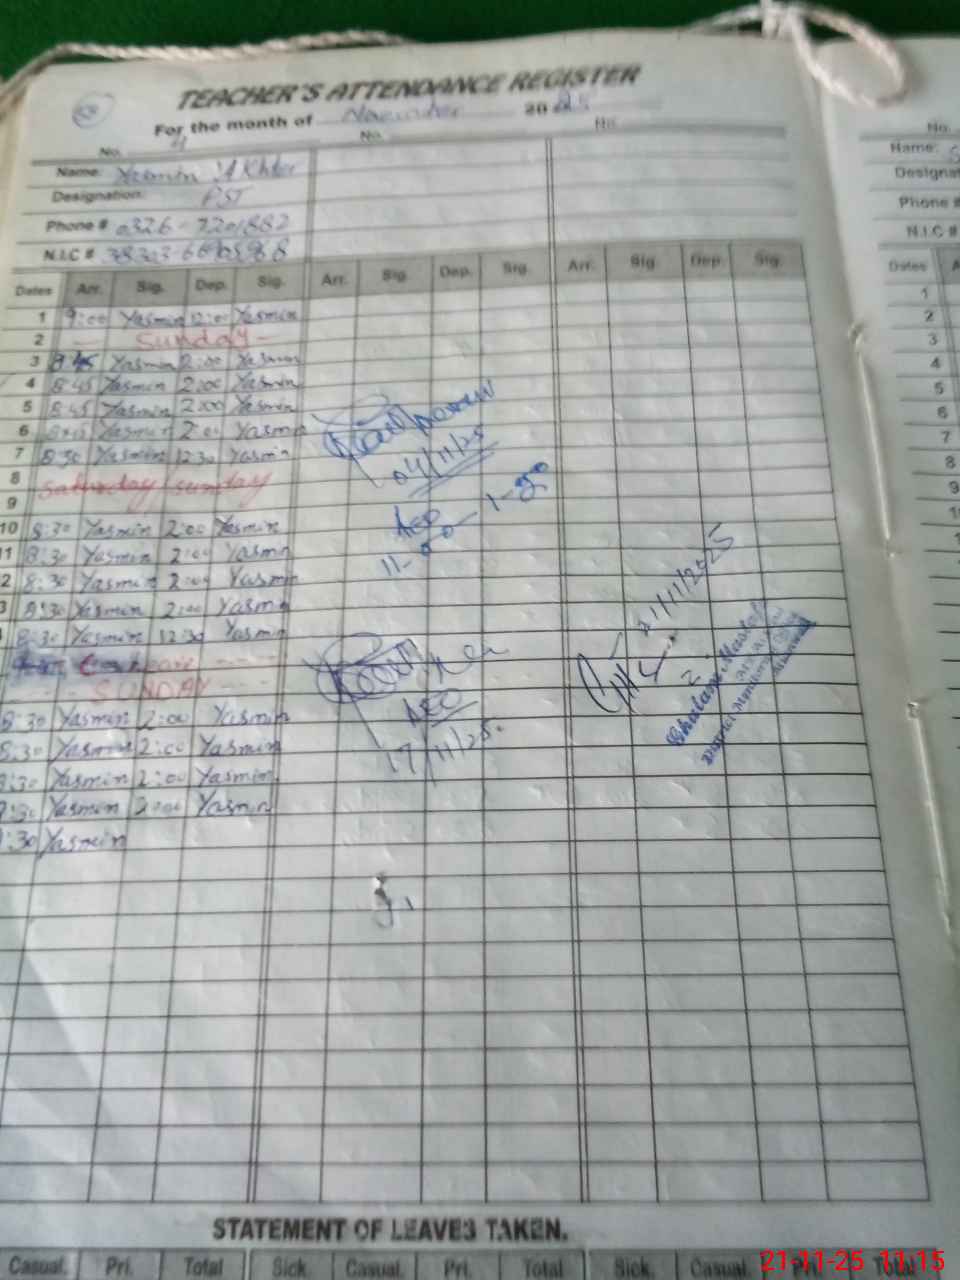 TEACHER'S ATTENDANCE REGISTER
For the month of November 2025
No. 4 No. No.
Name: Yasmin Akhter
Designation: PST
Phone # 0326-7201882
N.I.C #
Dates Arr. Sig. Dep. Sig. Arr. Sig. Dep. Sig. Arr. Sig. Dep. Sig.
1 9:00 Yasmin 12:00 Yasmin
2 - Sunday -
3 8:45 Yasmin 2:00 Yasmin
4 8:45 Yasmin 2:00 Yasmin
5 8:45 Yasmin 2:00 Yasmin
6 Yasmin 2:00 Yasmin
7 8:30 Yasmin 12:30 Yasmin
8 saturday sunday
9
10 8:30 Yasmin 2:00 Yasmin
11 8:30 Yasmin 2:00 Yasmin
2 8:30 Yasmin 2:00 Yasmin
3 8:30 Yasmin 2:00 Yasmin
8:30 Yasmin 12:30 Yasmin
---- SUNDAY ---
8:30 Yasmin 2:00 Yasmin
8:30 Yasmin 2:00 Yasmin
8:30 Yasmin 2:00 Yasmin
8:30 Yasmin 2:00 Yasmin
8:30 Yasmin
04/11/25
AEO
AEO
17/11/25.
21/11/2025
Name:
Designat
Phone #
N.I.C #
Dates A
1
2
3
4
5
6
7
8
9
STATEMENT OF LEAVES TAKEN.
Casual. Pri. Total Sick. Casual. Pri. Total Sick. Casual. Pri. Total
21-11-25 11:15